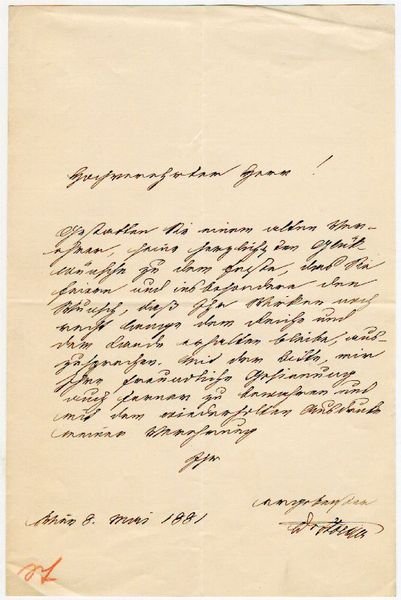 Hochverehrter Herr!
Gestatten Sie einem alten Ver-
ehrer, seine herzlichsten Glück
wünsche zu dem Feste, das Sie
feiern und insbesondere den
Wunsch, daß Ihr Wirken noch
recht lange dem Reiche und
dem Lande erhalten bleibe, aus-
zusprechen. Mit der Bitte, mir
Ihre freundliche Gesinnung
auch ferner zu bewahren und
mit dem wiederholten Ausdruck
meiner Verehrung
Ihr
ergebenster
8. Mai 1881